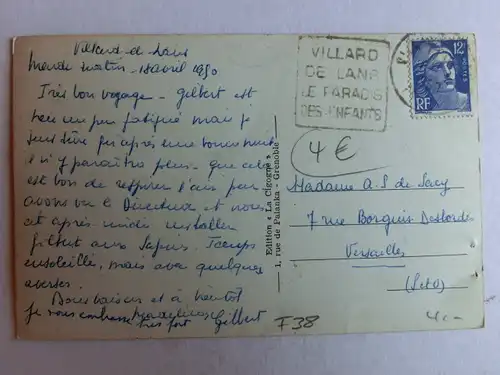 Villard de Lans
mardi matin - 18 avril 1950
Très bon voyage - Gilbert est
un peu fatigué mais je
suis sûre qu'après une bonne nuit
il n'y paraîtra plus - que cela
est bon de respirer l'air pur
avons vu le Directeur et nous
cet après midi installer
Gilbert aux Sapins. Temps
ensoleillé, mais avec quelques
averses.
Bons baisers et à bientôt
je vous embrasse très fort Gilbert
VILLARD
DE LANS
LE PARADIS
DES ENFANTS
12F
POSTES
RF
4 €
Edition « La Cigogne »
1, rue de Palanka - Grenoble
Madame A. S. de Sacy
7 rue Borgnis Desbordes
Versailles
(S et O)
F38